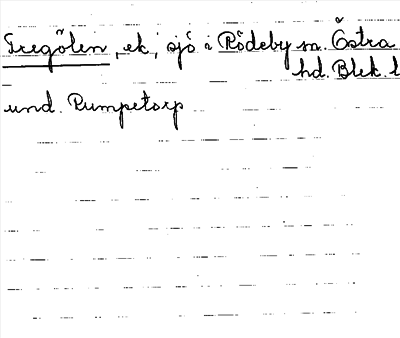 Tregölen, ek, sjö i Rödeby sn. Östra
hd. Blek. l
und. Rumpetorp